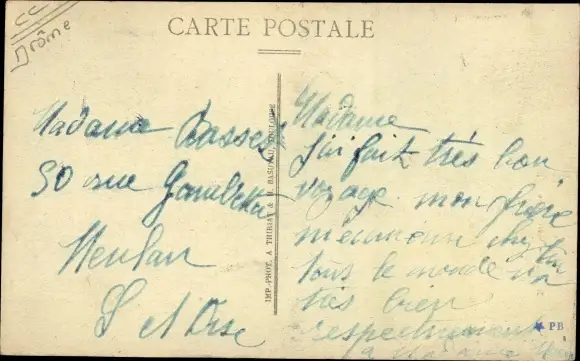 CC
Drôme
CARTE POSTALE
Madame Basset
50 rue Gambetta
Meulan
S et Oise
IMP.-PHOT. A THIRIAT & BASUYAU, TOULOUSE
Madame
j'ai fait très bon
voyage. mon frère
tous le monde va
très bien
respectueusement
PB